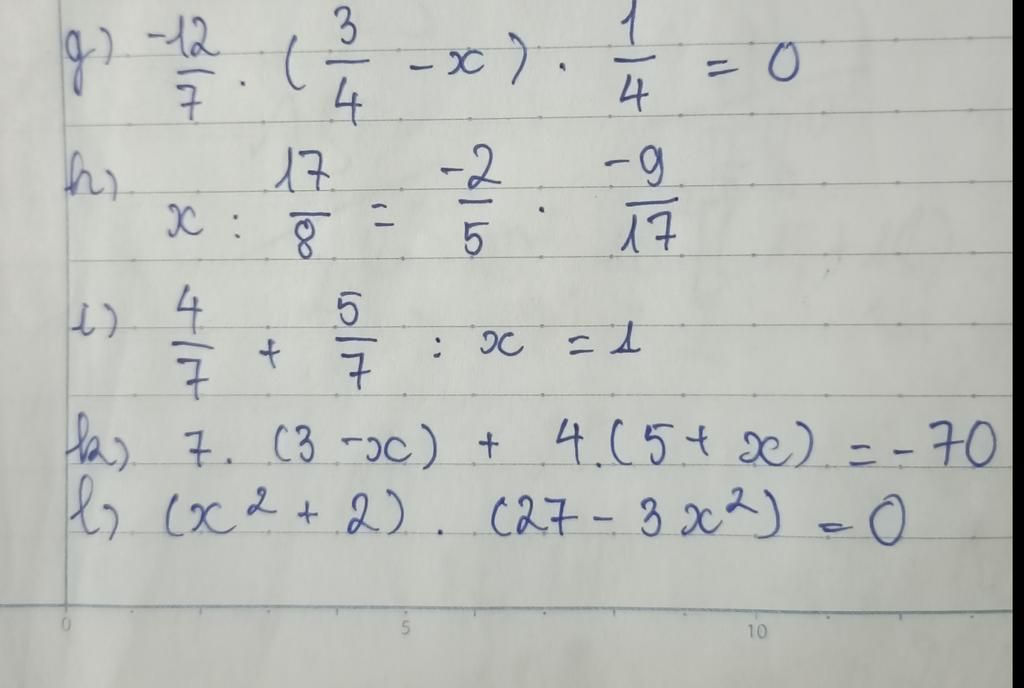 g) -12/7 . (3/4 - x) . 1/4 = 0
h) x : 17/8 = -2/5 . -9/17
i) 4/7 + 5/7 : x = 1
k) 7. (3 - x) + 4.(5 + x) = - 70
l) (x² + 2) . (27 - 3x²) = 0
0 5 10